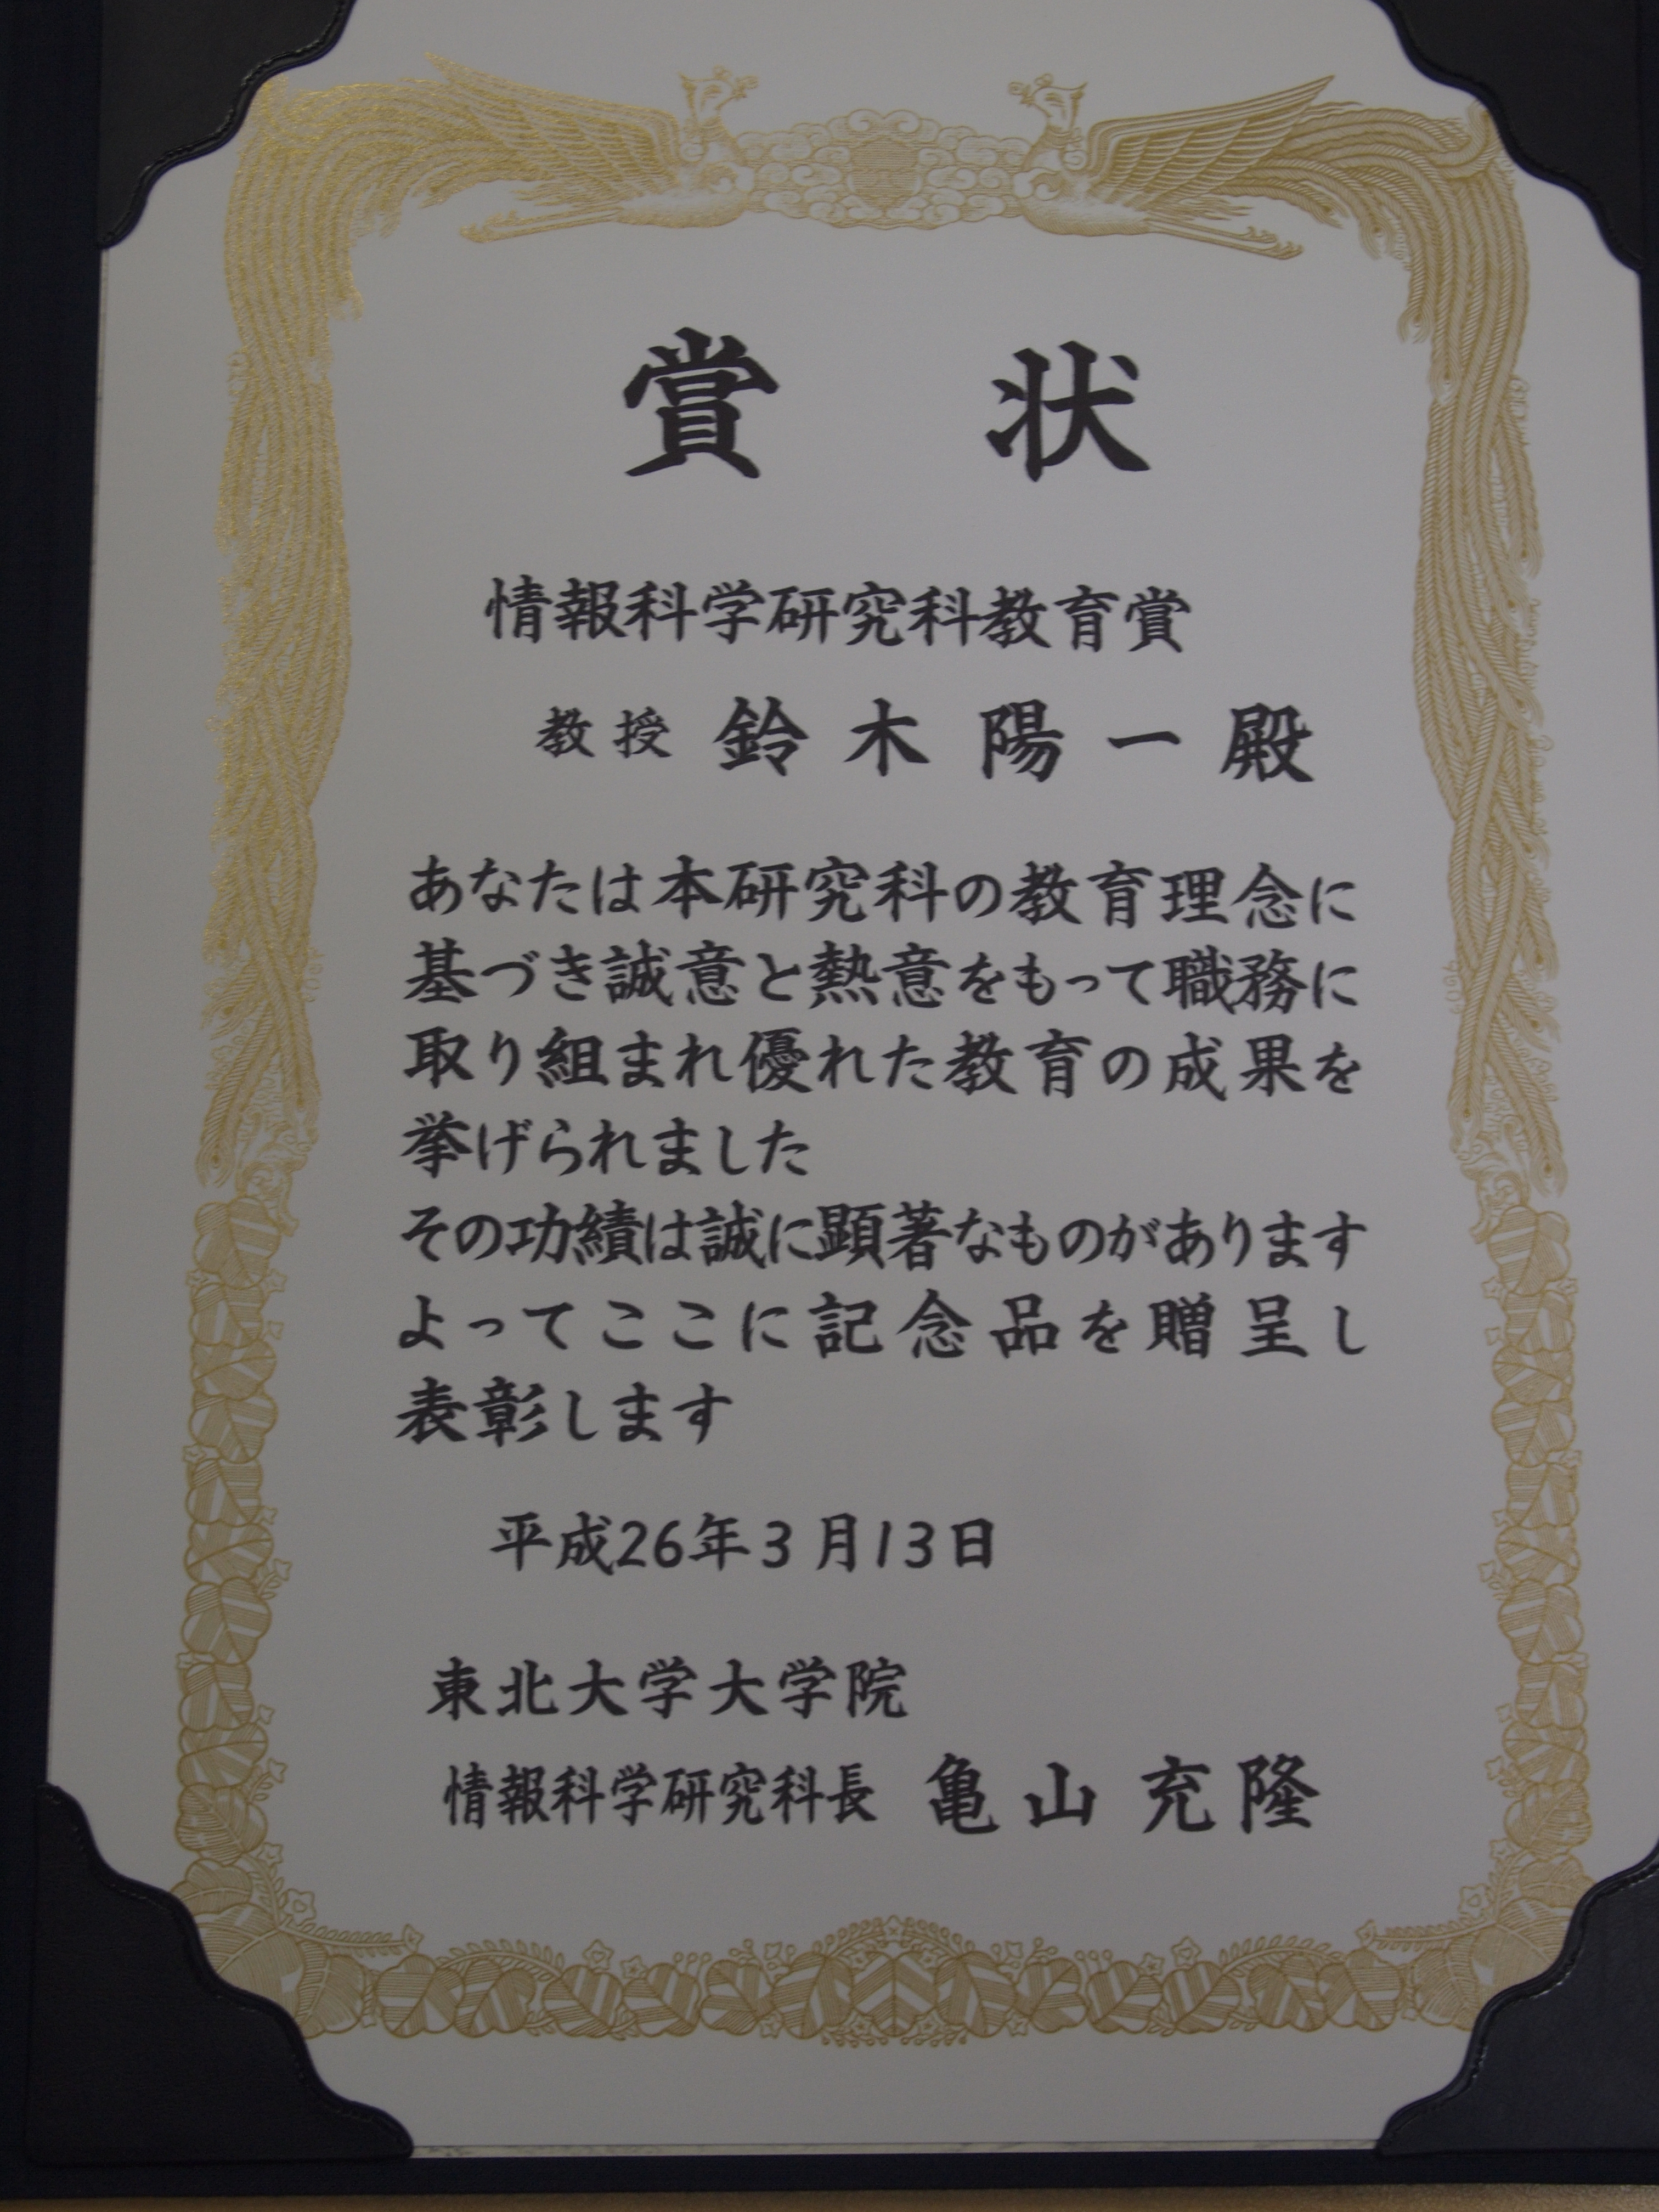 賞状
情報科学研究科教育賞
教授 鈴木陽一殿
あなたは本研究科の教育理念に
基づき誠意と熱意をもって職務に
取り組まれ優れた教育の成果を
挙げられました
その功績は誠に顕著なものがあります
よってここに記念品を贈呈し
表彰します
平成26年3月13日
東北大学大学院
情報科学研究科長 亀山充隆